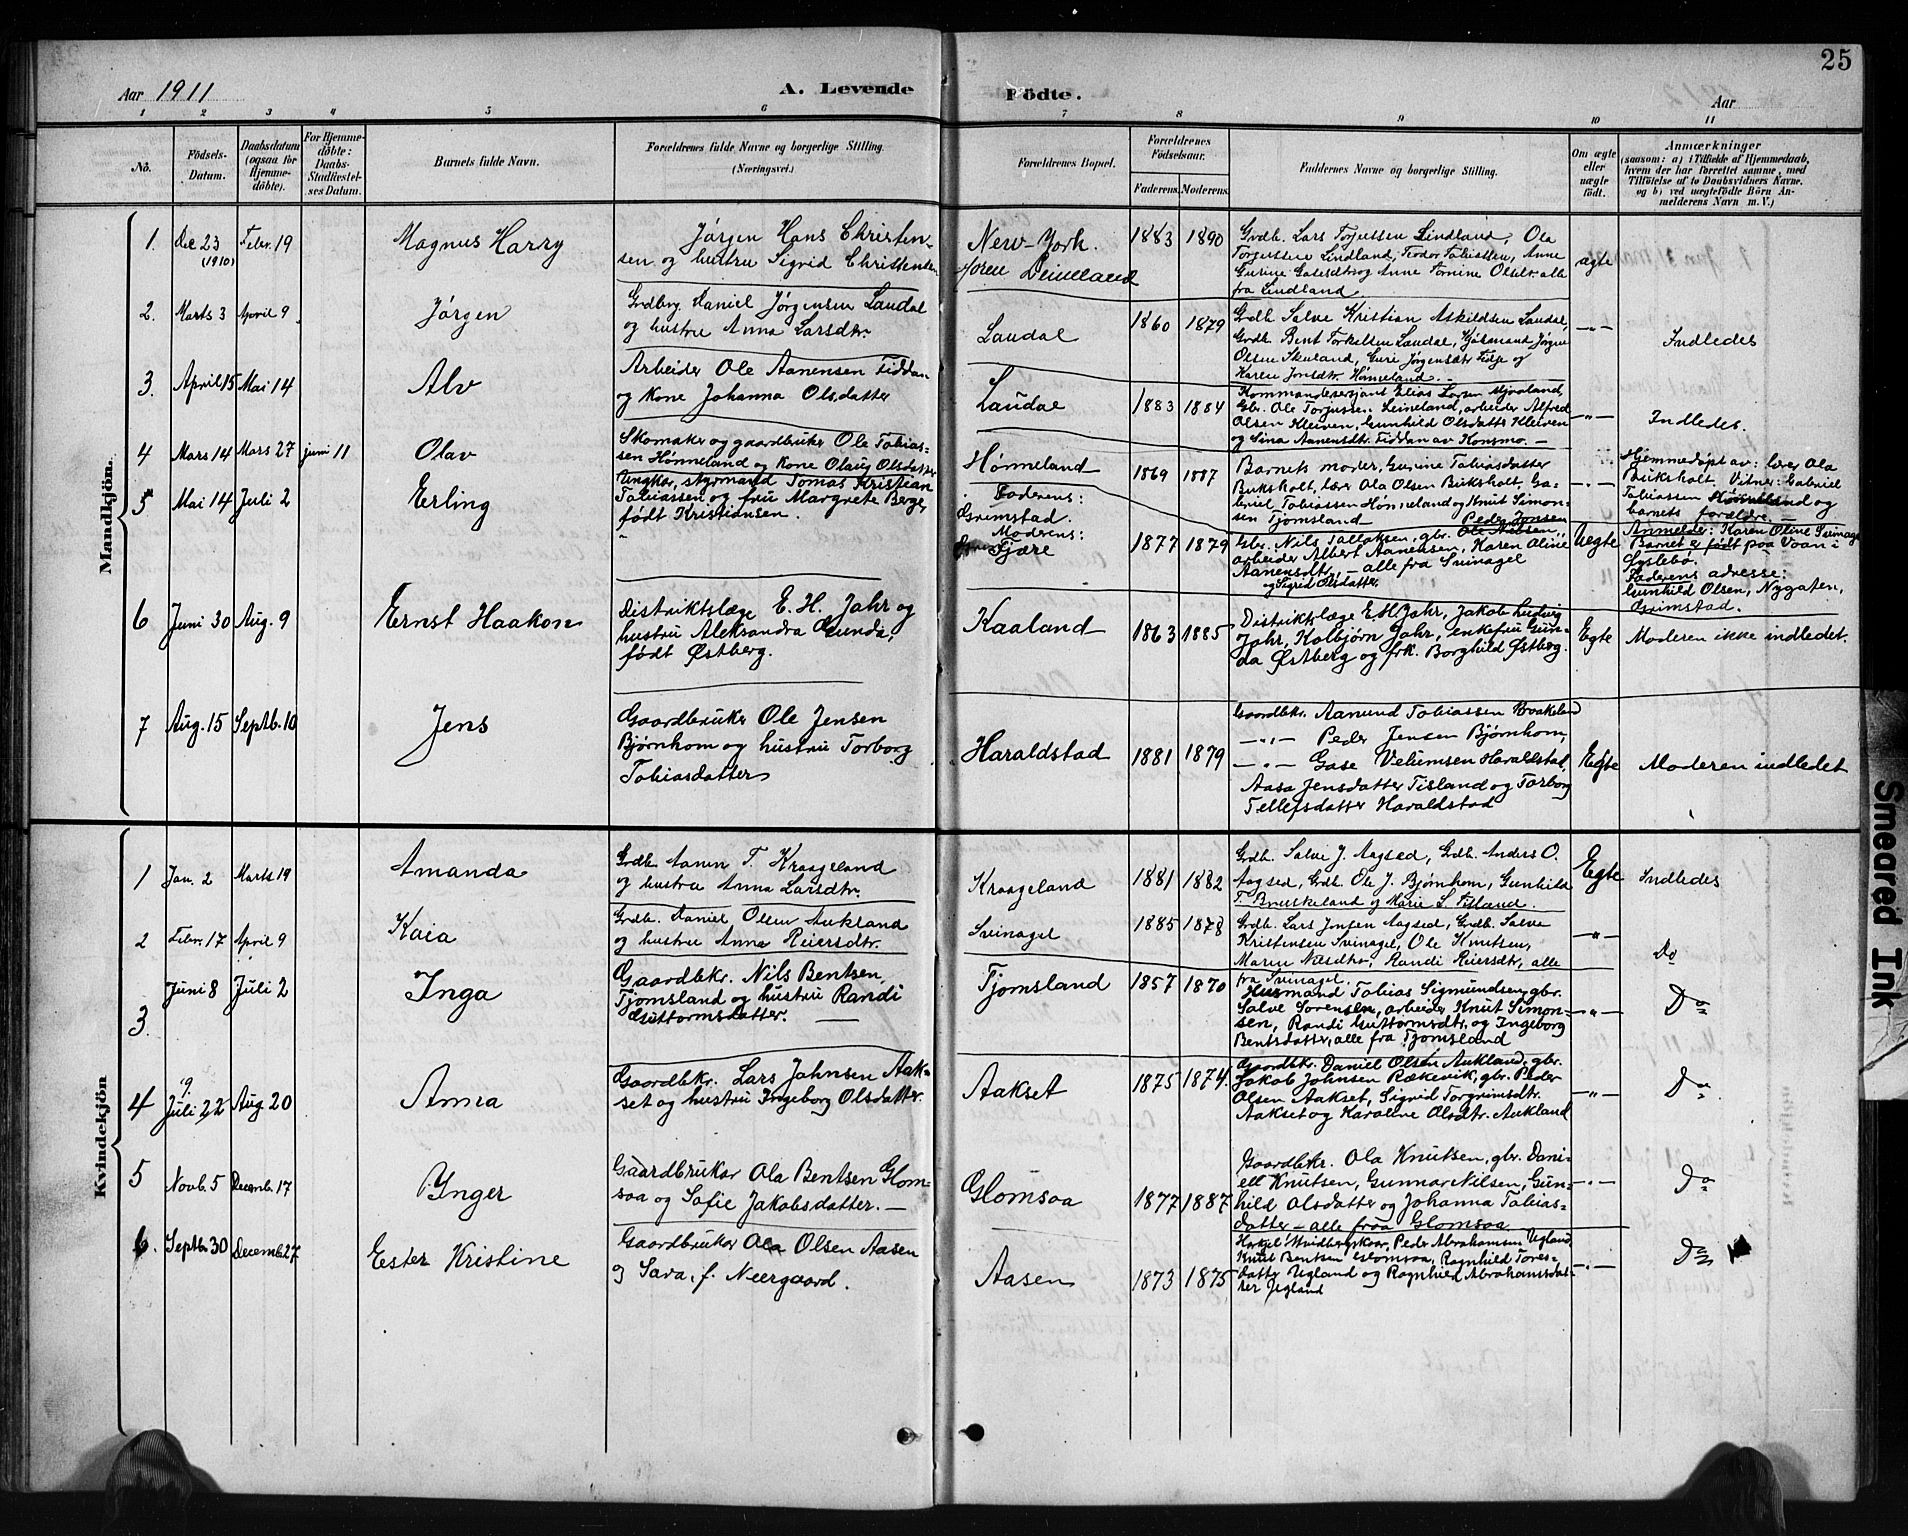 25
Aar 1911
A. Levende
Födte.
Aar
1 2 3 4 5 6 7 8 9 10 11
No.
Födsels-
Datum.
Daabsdatum
(ogsaa for
Hjemme-
döbte).
For Hjemme-
döbte:
Daabs-
Stadfæstel-
ses Datum.
Barnets fulde Navn.
Forældrenes fulde Navne og borgerlige Stilling.
(Næringsvei.)
Forældrenes Bopæl.
Forældrenes
Födselsaar.
Faderens.
Moderens.
Faddernes Navne og borgerlige Stilling.
Om ægte
eller
uægte
födt.
Anmærkninger
(saasom: a) i Tilfælde af Hjemmedaab,
hvem der har forrettet samme, med
Tilföielse af to Daabsvidners Navne.
og b) ved uægtefödte Börn An-
melderens Navn m. V.)
Mandkjön.
1. Dec 23 (1910) Febr. 19
Magnus Harry
Jørgen Hans Christen-
sen og hustru Sigrid Christensen
New-York.
1883 1890
Grdb. Lars Torjussen Lindland, Ola
Torjussen Lindland, Teodor Tobiassen, Anne
fra Lindland.
ægte
2. Marts 3 April 9
Jørgen
Grdbrg. Daniel Jørgensen Laudal
og hustru Anna Larsdtr.
Laudal
1860 1879
Grdb. Salve Kristian Askildsen Laudal,
Grdb. Bent Torkelsen Laudal, Jørgen
Olsen Skuland, Guri Jørgensdtr Fidje og
Karen Jonsdtr. Hønneland.
-"-
Indledes
3. April 15 Mai 14
Alv
Arbeider Ole Aanensen Fiddan
og Kone Johanna Olsdatter
Laudal
1883 1884
Kommandersersjant Elias Larsen
Gbr. Ole Torjussen Leineland, arbeider Alfred
Olsen Kleiven, Gunhild Olsdatter Kleiven
og Sina Aanensdtr. Fiddan av Konsmo. —
-"-
Indledes.
4 Mars 14 Mars 27 juni 11
Olav
Skomaker og gaardbruker Ole Tobias-
sen Hønneland og Kone Olaug Olsdatter
Hønneland
1869 1887
Barnets moder, Gurine Tobiasdatter
Buksholt, lærer Ola Olsen Buksholt, Ga-
briel Tobiassen Hønneland og Knut Simon-
sen Tjomsland
-"-
Hjemmedøpt av: lærer Ola
Buksholt, Vitner: Gabriel
Tobiassen og
barnets forældre.
5 Mai 14 Juli 2
Erling
Ungkar, styrmand Tomas Kristian
Tobiassen og fru Margrete Berge,
født Kristiansen.
Faderens:
Grimstad.
Moderens:
Fjære
1877 1879
Peder Jonsen
Gbr. Nils Tallaksen, gbr. Ole Nilsen,
arbeider Albert Aanensen, Karen Oline
Aanensdtr, — alle fra Svinagel
og Sigrid Olsdatter.
Uegte
Anmelder: Karen Oline Svinagel
Barnet er født paa Voan i
Øyslebø.
Faderens adresse:
Gunhild Olsen, Nygaten,
Grimstad.
6 Juni 30 Aug. 9
Ernst Haakon
Distriktslæge E. H. Jahr og
hustru Aleksandra Gunda,
født Østberg.
Kaaland
1863 1885
Distriktslæge E H Jahr, Jakob Ludvig
Jahr, Kolbjørn Jahr, enkefru Gun-
da Østberg og frk. Borghild Østberg.
Egte
Moderen ikke indledet.
7 Aug. 15 Septb. 10
Jens
Gaardbruker Ole Jensen
Bjørnhom og hustru Torborg
Tobiasdatter
Haraldstad
1881 1879
Gaardbkr. Aanund Tobiassen
-"- Peder Jensen Bjørnhom,
-"- Gase Velumsen Haraldstad,
Aasa Jensdatter Tisland og Torborg
Tellefsdatter Haraldstad
Egte
Moderen indledet
Kvindekjön
1 Jan. 2 Marts 19
Amanda
Grdb. Aanen T. Kraageland
og hustru Anna Larsdtr.
Kraageland
1881 1882
Grdb. Salve J. Aagsed, Grdb. Anders O.
Aagsed, Grdb. Ole J. Bjørnhom, Gunhild
T. Bruskeland og Marie S. Tisland.
Egte
Indledes
2 Febr. 17 April 9
Kaia
Grdb. Daniel Olsen Aukland
og hustru Anna Reiersdtr.
Svinagel
1885 1878
Grdb. Lars Jensen Aagsed, Grdb. Salve
Kristensen Svinagel, Ole Knutsen,
Maren Nilsdtr, Randi Reiersdtr, alle
fra Svinagel.
-"-
Do
3. Juni 8 Juli 2
Inga
Gaardbkr. Nils Bentsen
Tjomsland og hustru Randi
Guttormsdatter. —
Tjomsland
1857 1870
Husmand Tobias Sigmundsen, gbr.
Salve Sørensen, arbeider Knut Simon-
sen, Randi Guttormsdtr. og Ingeborg
Bentsdatter, alle fra Tjomsland
-"-
Do
4 Juli 22 Aug 20
9.
Anna
Gaardbkr. Lars Johnsen Aak-
set og hustru Ingeborg Olsdatter.
Aakset
1875 1874.
Gaardbkr. Daniel Olsen Aukland, gbr.
Jakob Johnsen Rækevik, gbr. Peder
Olsen Aakset, Sigrid Torgrimsdtr.
Aakset og Karoline Olsdtr. Aukland
-"-
Do
5 Novb. 5 Decemb. 17
Ynger
Gaardbruker Ola Bentsen Glom-
saa og Sofie Jakobsdatter. —
Glomsaa
1877 1887
Gaardbkr. Ola Knutsen, gbr. Dani-
ell Knutsen, Gunnar Nilsen, Gun-
hild Olsdatter og Johanna Tobias-
datter — alle fraa Glomsaa
-"-
Do
6. Septb 30 Decemb 27
Ester Kristine
Gaardbruker Ola Olsen Aasen
og Sara, f. Neergaard.
Aasen
1873 1875
Peder Abrahamsen Ugland,
Knut Bentsen Glomsaa, Ragnhild Tores-
datter Ugland og Ragnhild Abrahamsdat-
ter Ugland
-"-
Do
Smeared Ink